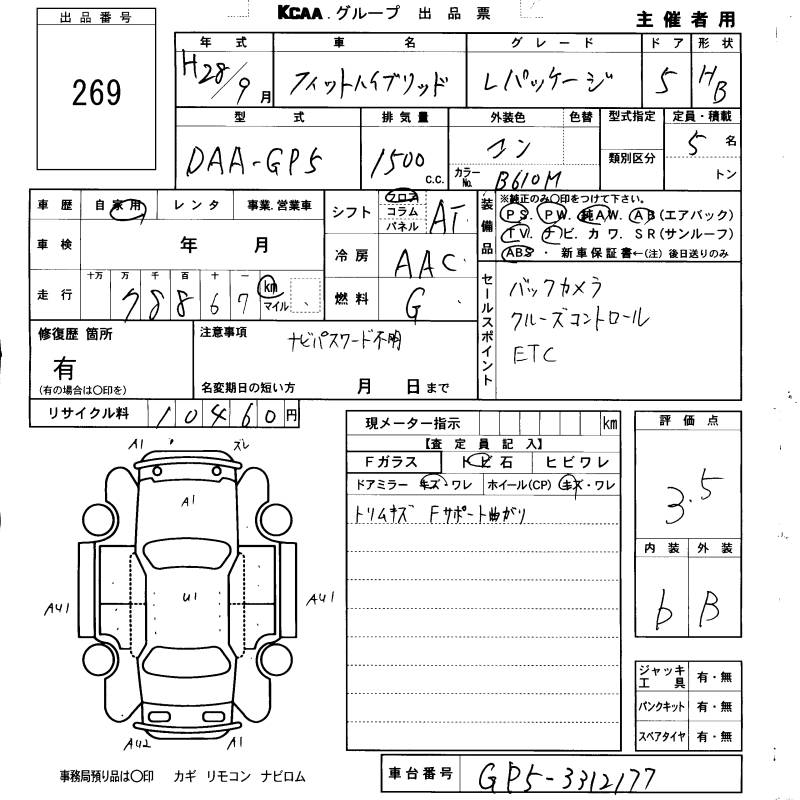 KCAA.グループ 出品票
主催者用
出品番号
269
年式 車名 グレード ドア 形状
H28/9月 フィットハイブリッド Lパッケージ 5 HB
型式 排気量 外装色 色替 型式指定 定員・積載
DAA-GP5 1500 c.c. コン 類別区分 5名
カラーNo. B610M トン
車歴 自家用 レンタ 事業.営業車
車検 年 月
走行 十万 万 千 百 十 一
78867 km マイル
シフト フロア コラム パネル AT
冷房 AAC
燃料 G
装備品 ※純正のみ○印をつけて下さい。
PS. PW. 純AW. AB(エアバック)
TV. ナビ. カワ. SR(サンルーフ)
ABS・新車保証書←(注)後日送りのみ
セールスポイント
バックカメラ
クルーズコントロール
ETC
修復歴 箇所
有
(有の場合は○印を)
注意事項
ナビパスワード不明
名変期日の短い方 月 日まで
リサイクル料 10460円
現メーター指示 km
【査定員記入】
Fガラス トビ石 ヒビワレ
ドアミラー キズ・ワレ ホイール(CP) キズ・ワレ
トリムキズ Fサポート曲がり
評価点
3.5
内装 外装
b B
A1 ズレ
A1
U1
AU1 AU1
AU2 A1
ジャッキ工具 有・無
パンクキット 有・無
スペアタイヤ 有・無
事務局預り品は○印 カギ リモコン ナビロム
車台番号 GP5-3312177